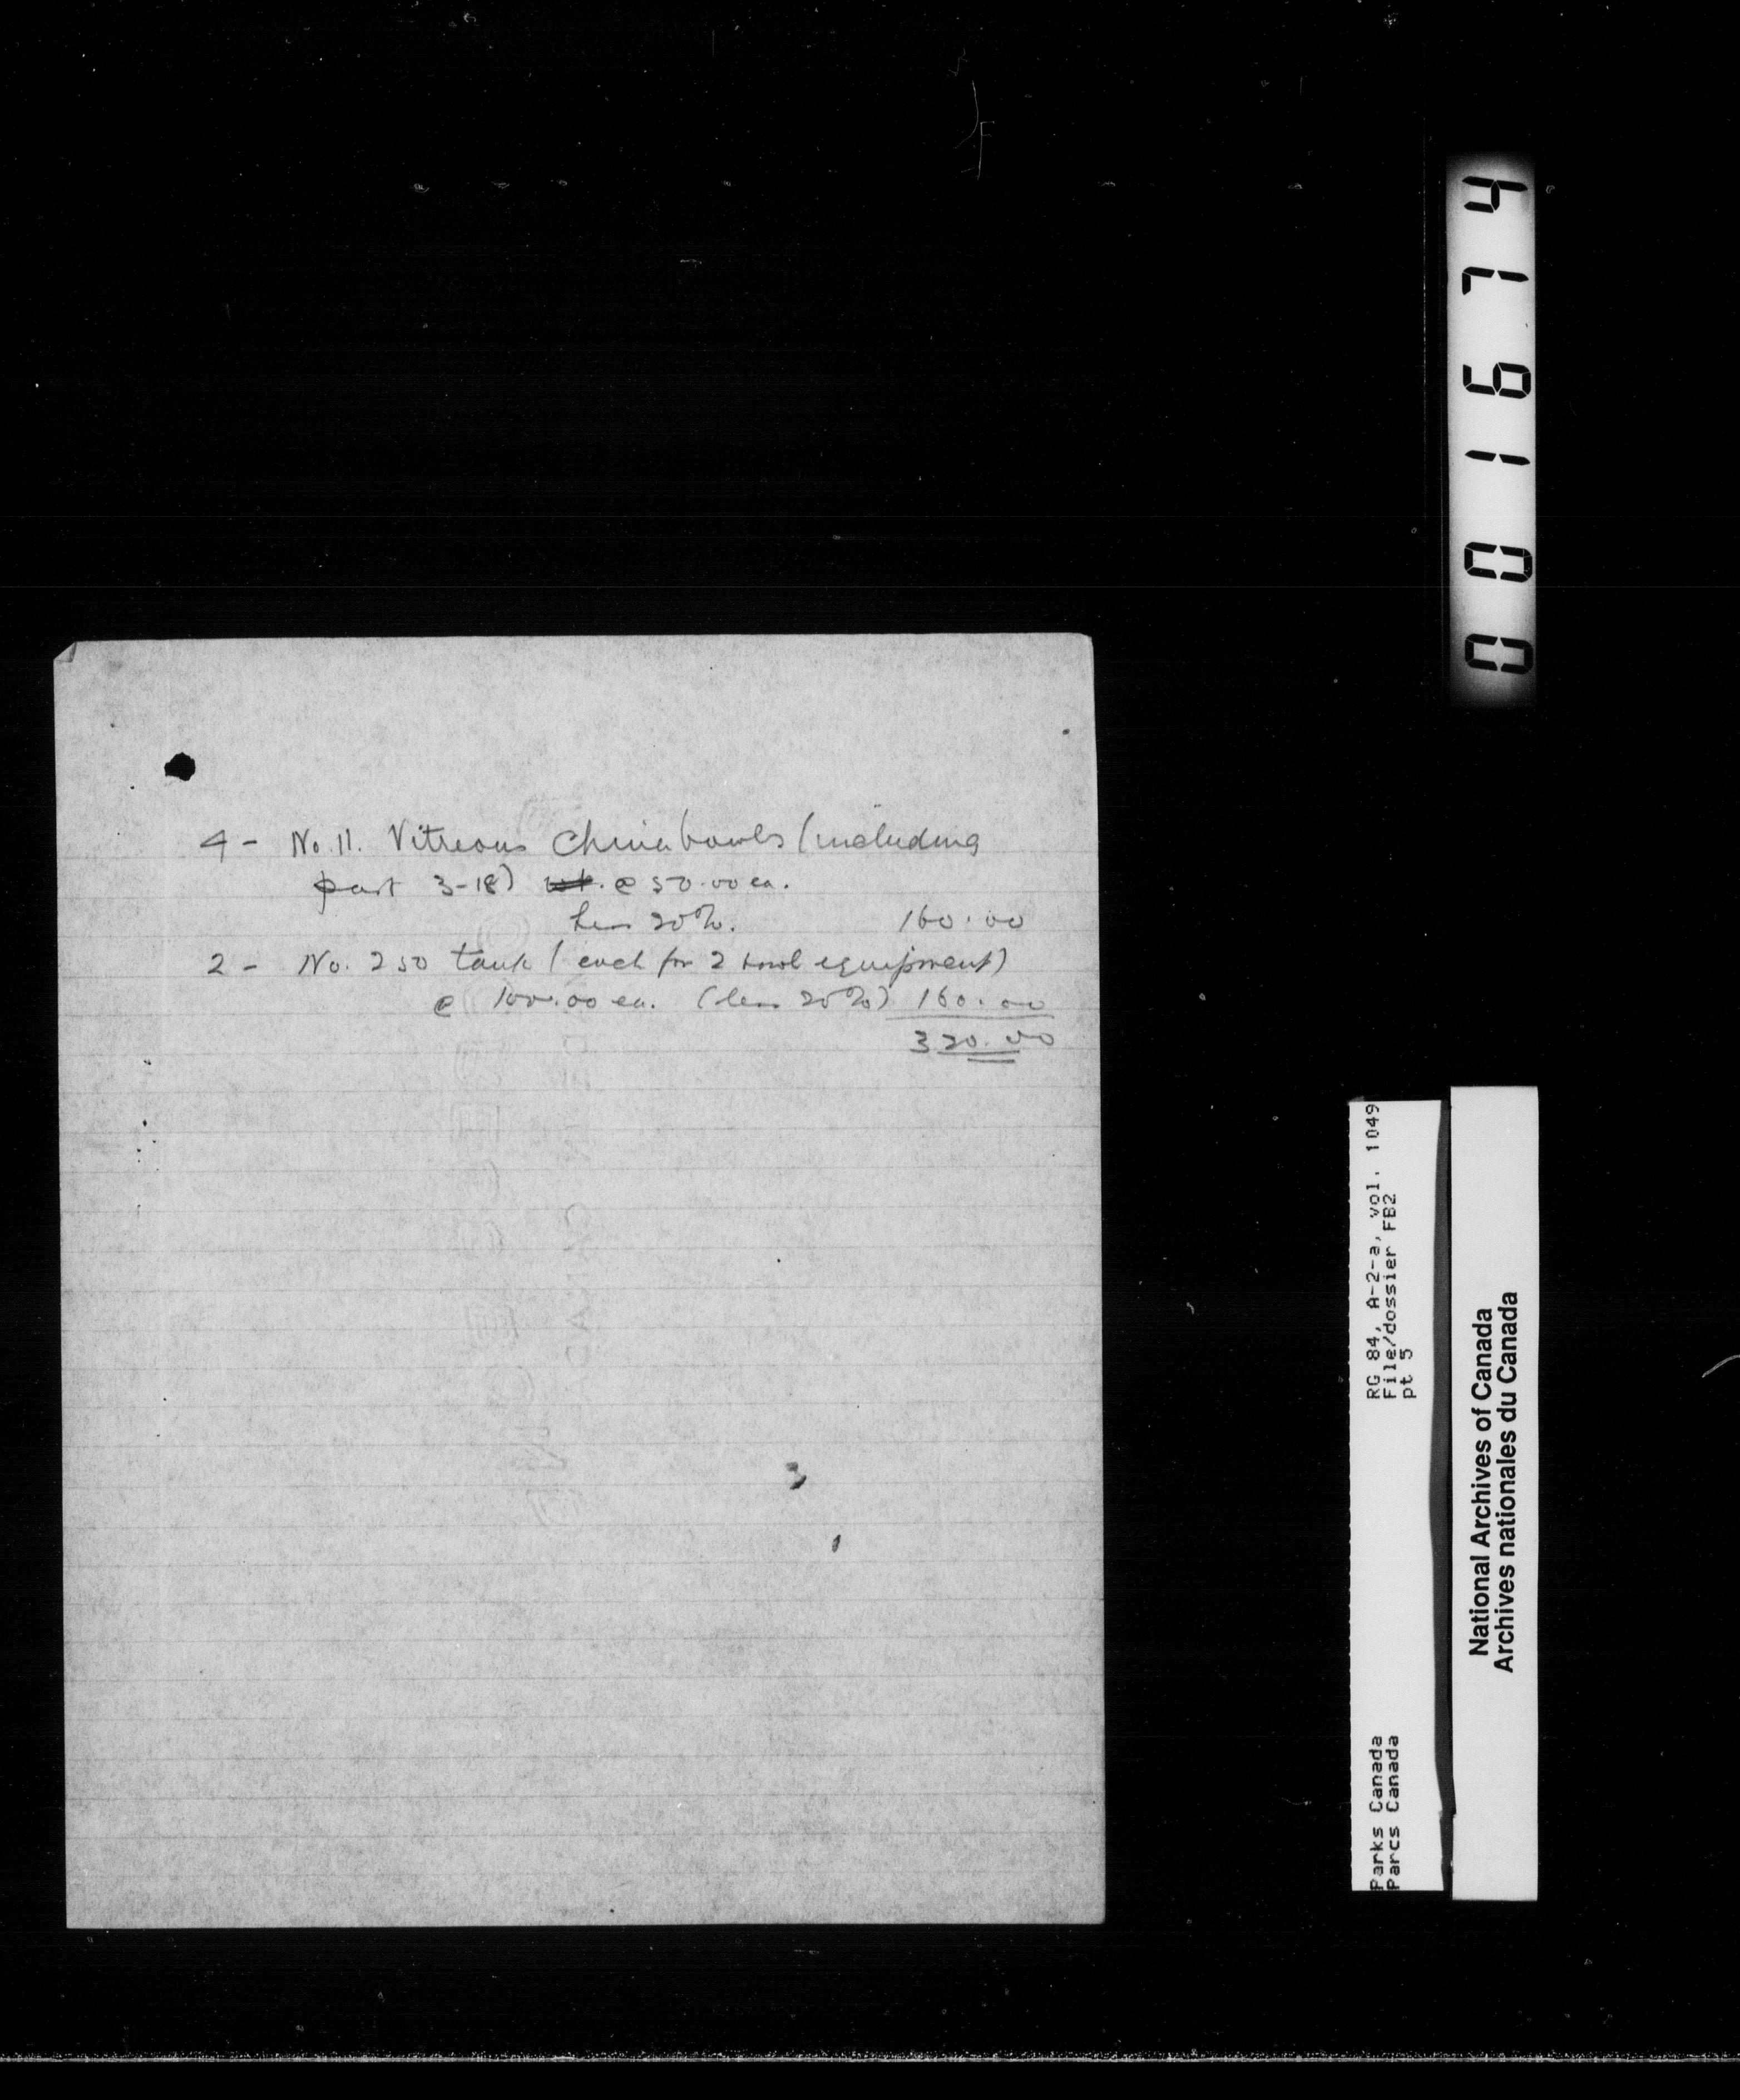 4 - No. 11. Vitreous China bowls (including
part 3-18) @ 50.00 ea.
Less 20%. 160.00
2 - No. 250 tank (each for 2 bowl equipment)
@ 100.00 ea. (less 20%) 160.00
320.00
001674
RG 84, A-2-a, vol. 1049
File/dossier FB2
pt 5
Parks Canada
Parcs Canada
National Archives of Canada
Archives nationales du Canada